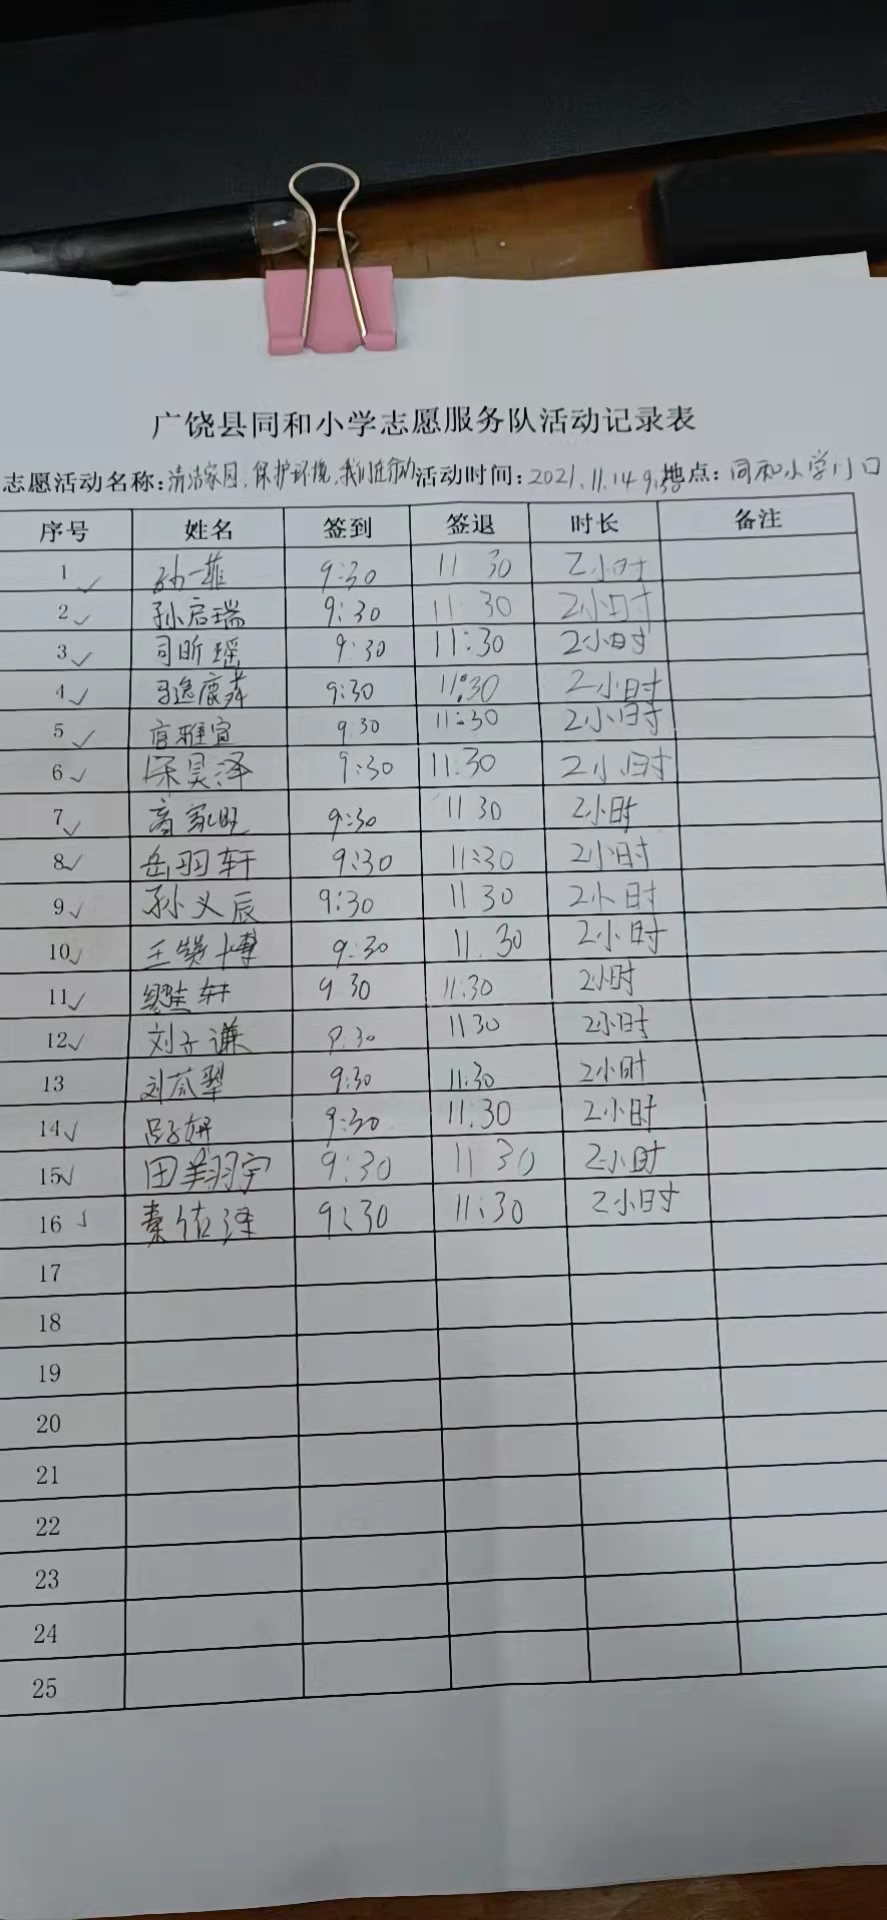 广饶县同和小学志愿服务队活动记录表
志愿活动名称:清洁家园,保护环境,我们在行动 活动时间:2021.11.14 9:30 地点:同和小学门口
序号 姓名 签到 签退 时长 备注
1 ✓ 孙一菲 9:30 11 30 2小时
2 ✓ 孙启瑞 9:30 11 30 2小时
3 ✓ 司昕瑶 9:30 11:30 2小时
4 ✓ 9:30 11:30 2小时
5 ✓ 9:30 11:30 2小时
6 ✓ 宋昊泽 9:30 11:30 2小时
7 ✓ 高家旺 9:30 11 30 2小时
8 ✓ 岳羽轩 9:30 11:30 2小时
9 ✓ 孙义辰 9:30 11 30 2小时
10 ✓ 9:30 11.30 2小时
11 ✓ 9 30 11:30 2小时
12 ✓ 刘子谦 11 30 2小时
13 9:30 11:30 2小时
14 ✓ 吕子妍 9:30 11:30 2小时
15 ✓ 田翔宇 9:30 11 30 2小时
16 ✓ 秦佑泽 9:30 11:30 2小时
17
18
19
20
21
22
23
24
25